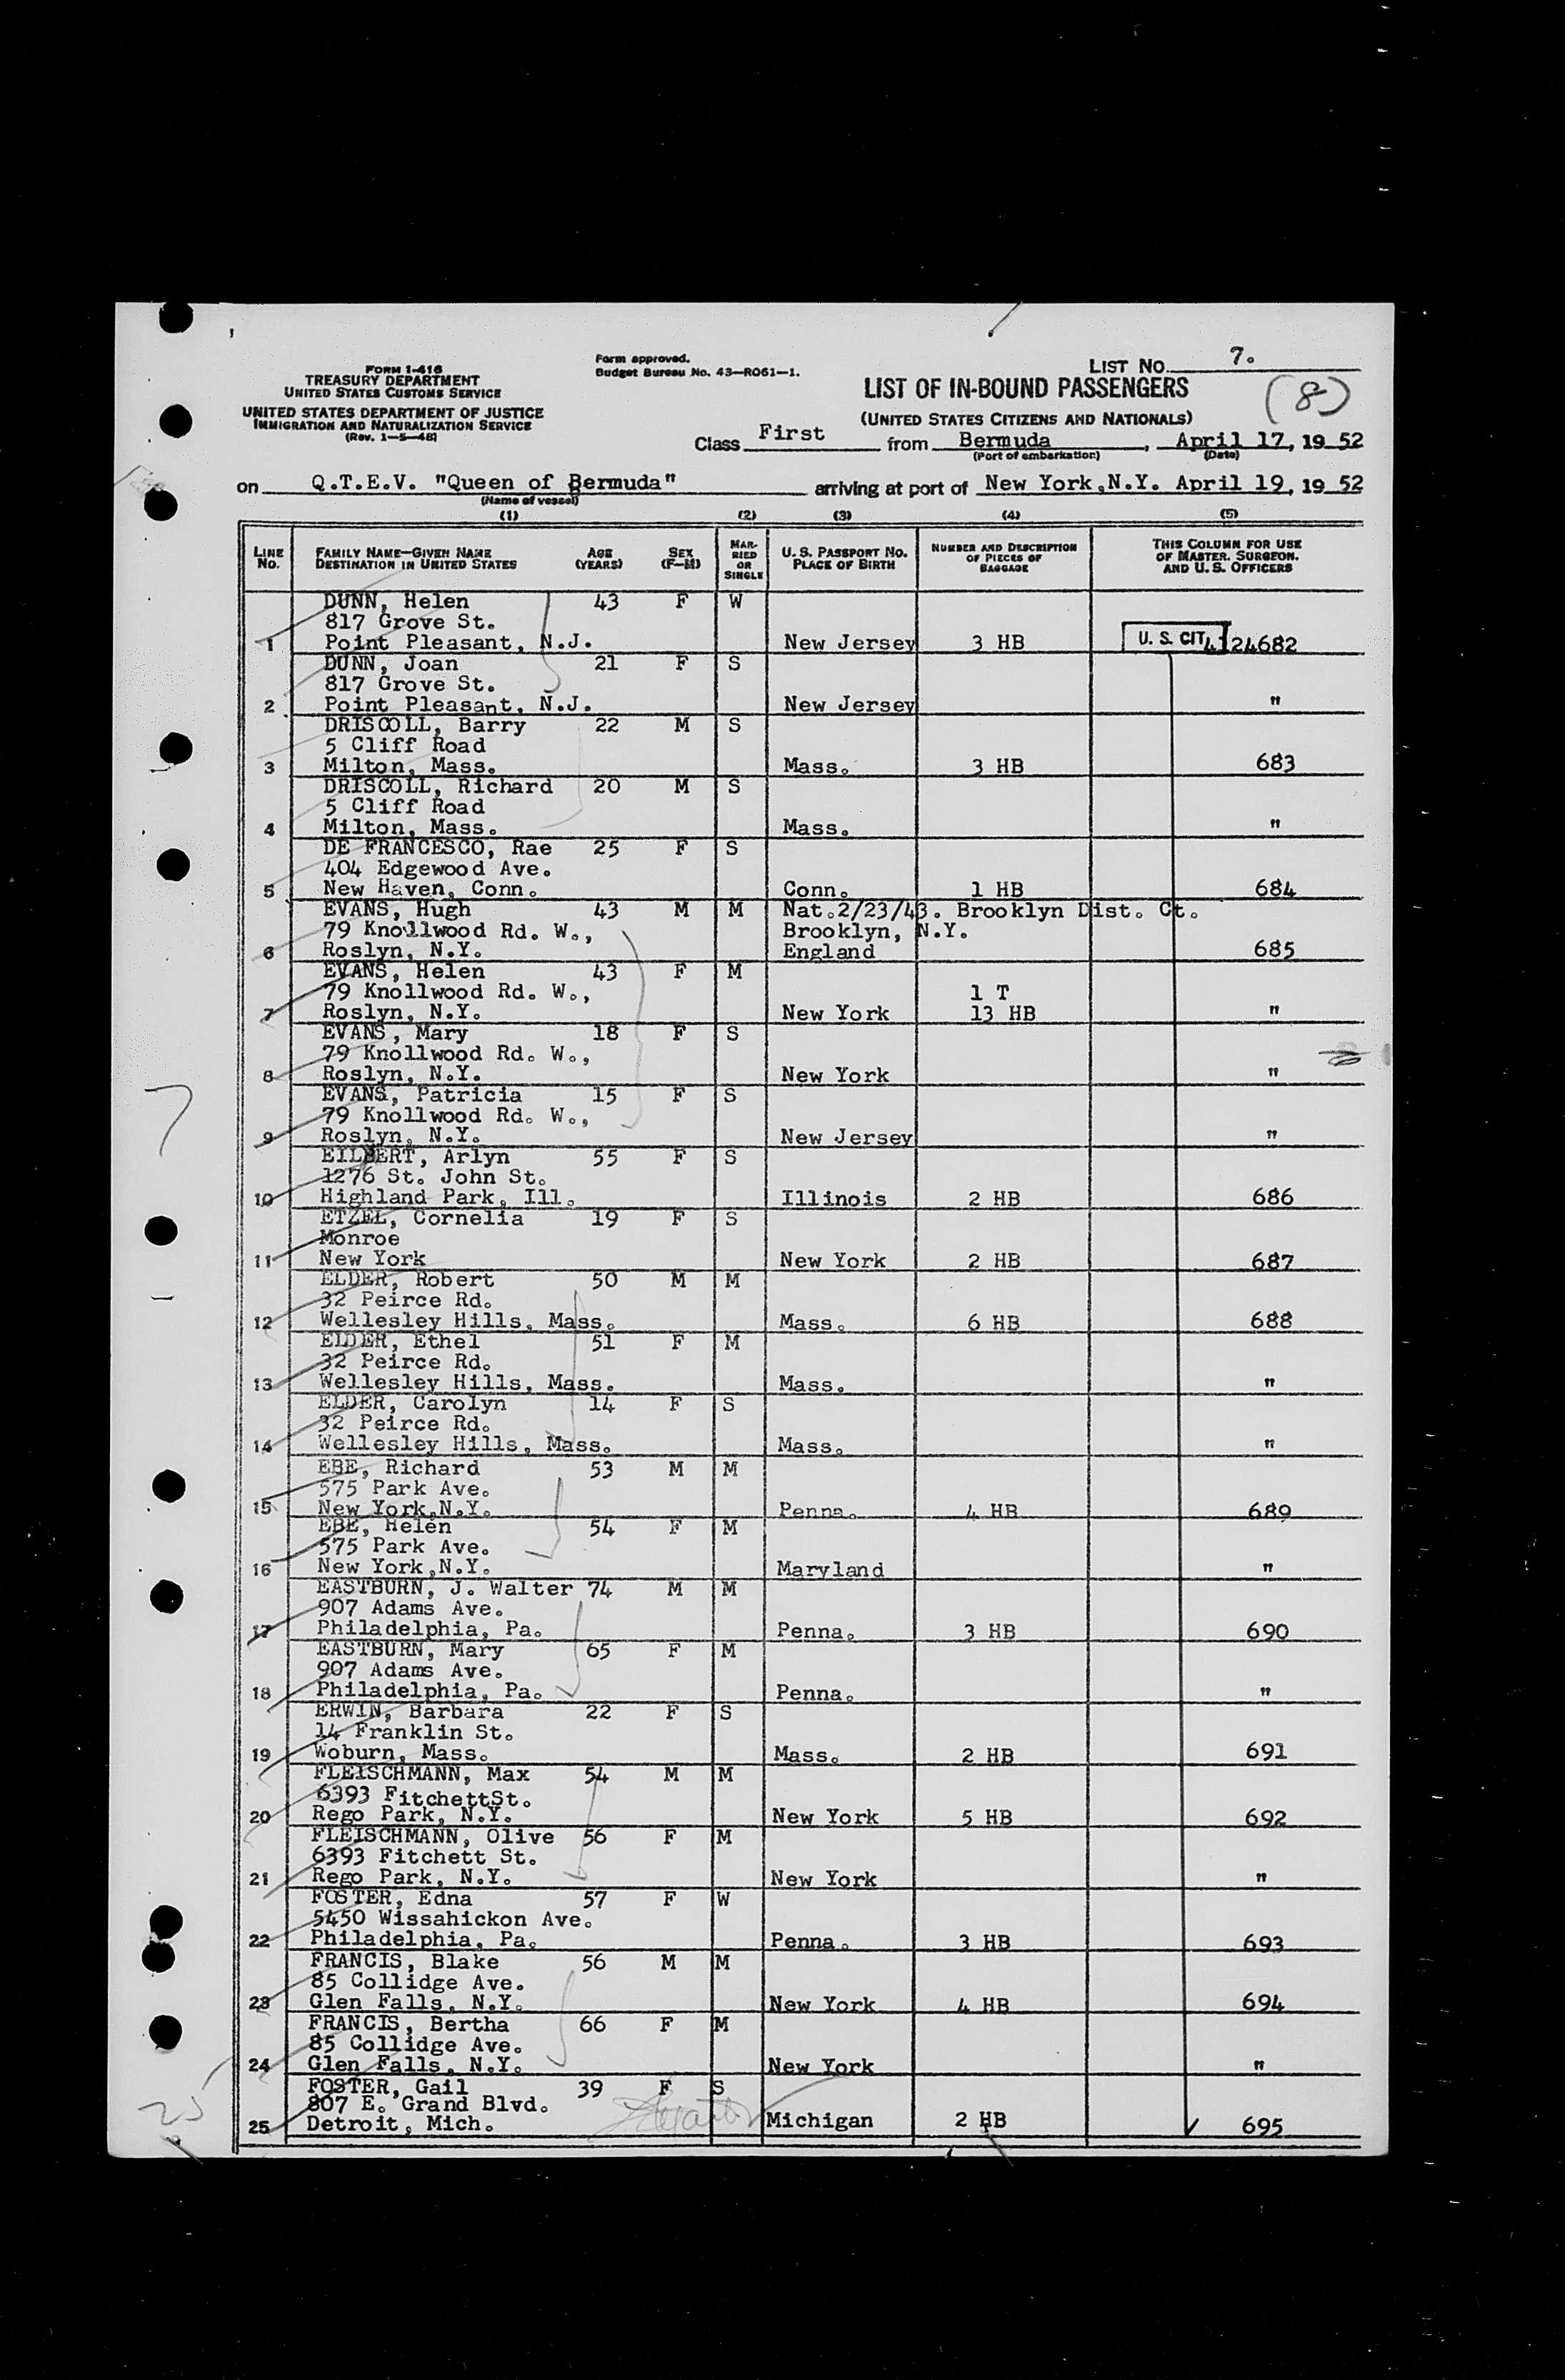 LIST NO. 7.
FORM I-416
TREASURY DEPARTMENT
UNITED STATES CUSTOMS SERVICE
UNITED STATES DEPARTMENT OF JUSTICE
IMMIGRATION AND NATURALIZATION SERVICE
(Rev. 1-5-48)
Form approved.
Budget Bureau No. 43-R061-1.
LIST OF IN-BOUND PASSENGERS
(8)
(UNITED STATES CITIZENS AND NATIONALS)
Class First from Bermuda, April 17, 19 52
(Port of embarkation) (Date)
on Q.T.E.V. "Queen of Bermuda" arriving at port of New York,N.Y. April 19, 19 52
(Name of vessel)
(1) (2) (3) (4) (5)
LINE No. FAMILY NAME—GIVEN NAME DESTINATION IN UNITED STATES AGE (YEARS) SEX (F-M) MARRIED OR SINGLE U. S. PASSPORT No. PLACE OF BIRTH NUMBER AND DESCRIPTION OF PIECES OF BAGGAGE THIS COLUMN FOR USE OF MASTER. SURGEON. AND U. S. OFFICERS
DUNN, Helen 43 F W
817 Grove St.
1 Point Pleasant, N.J. New Jersey 3 HB U. S. CIT. 4124682
DUNN, Joan 21 F S
817 Grove St.
2 Point Pleasant, N.J. New Jersey "
DRISCOLL, Barry 22 M S
5 Cliff Road
3 Milton, Mass. Mass. 3 HB 683
DRISCOLL, Richard 20 M S
5 Cliff Road
4 Milton, Mass. Mass. "
DE FRANCESCO, Rae 25 F S
404 Edgewood Ave.
5 New Haven, Conn. Conn. 1 HB 684
EVANS, Hugh 43 M M Nat.2/23/43. Brooklyn Dist. Ct.
79 Knollwood Rd. W., Brooklyn, N.Y.
6 Roslyn, N.Y. England 685
EVANS, Helen 43 F M
79 Knollwood Rd. W., 1 T
7 Roslyn, N.Y. New York 13 HB "
EVANS, Mary 18 F S
79 Knollwood Rd. W.,
8 Roslyn, N.Y. New York "
EVANS, Patricia 15 F S
79 Knollwood Rd. W.,
9 Roslyn, N.Y. New Jersey "
7
EILBERT, Arlyn 55 F S
1276 St. John St.
10 Highland Park, Ill. Illinois 2 HB 686
ETZEL, Cornelia 19 F S
Monroe
11 New York New York 2 HB 687
ELDER, Robert 50 M M
32 Peirce Rd.
12 Wellesley Hills, Mass. Mass. 6 HB 688
ELDER, Ethel 51 F M
32 Peirce Rd.
13 Wellesley Hills, Mass. Mass. "
ELDER, Carolyn 14 F S
32 Peirce Rd.
14 Wellesley Hills, Mass. Mass. "
EBE, Richard 53 M M
575 Park Ave.
15 New York,N.Y. Penna. 4 HB 689
EBE, Helen 54 F M
575 Park Ave.
16 New York,N.Y. Maryland "
EASTBURN, J. Walter 74 M M
907 Adams Ave.
17 Philadelphia, Pa. Penna. 3 HB 690
EASTBURN, Mary 65 F M
907 Adams Ave.
18 Philadelphia, Pa. Penna. "
ERWIN, Barbara 22 F S
14 Franklin St.
19 Woburn, Mass. Mass. 2 HB 691
FLEISCHMANN, Max 54 M M
6393 FitchettSt.
20 Rego Park, N.Y. New York 5 HB 692
FLEISCHMANN, Olive 56 F M
6393 Fitchett St.
21 Rego Park, N.Y. New York "
FOSTER, Edna 57 F W
5450 Wissahickon Ave.
22 Philadelphia, Pa. Penna. 3 HB 693
FRANCIS, Blake 56 M M
85 Collidge Ave.
23 Glen Falls, N.Y. New York 4 HB 694
FRANCIS, Bertha 66 F M
85 Collidge Ave.
24 Glen Falls, N.Y. New York "
FOSTER, Gail 39 F S
807 E. Grand Blvd.
25 Detroit, Mich. Michigan 2 HB 695
25